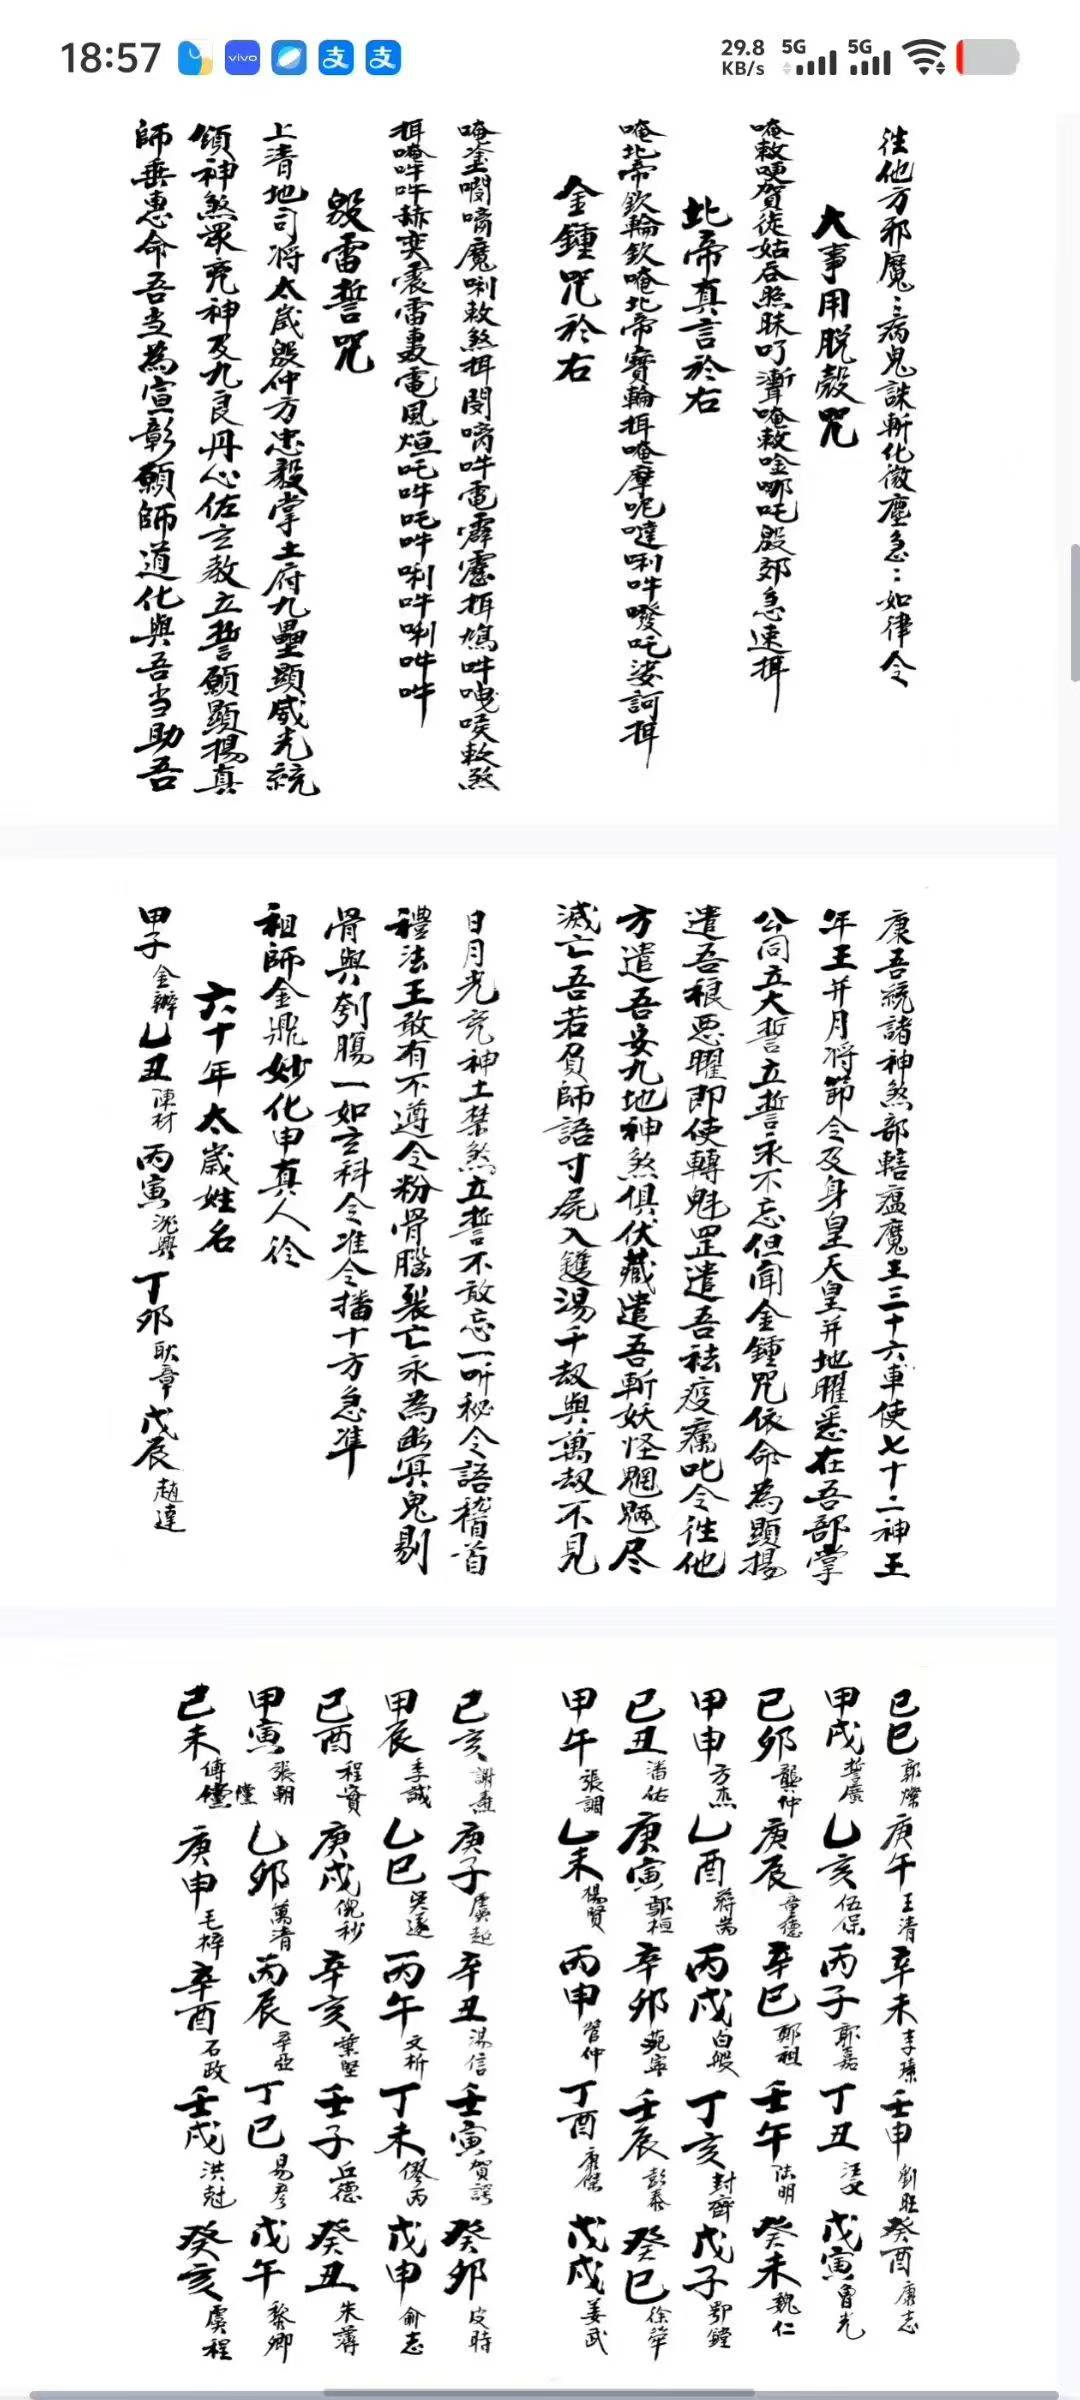 18:57
vivo
支
支
29.8 KB/s
5G
5G
徃他方邪魔〻病鬼誅斬化微塵急〻如律令
大事用脱殼咒
唵敕哽賀徒姑吞照昧叮漸唵敕唫哪吒殷郊急速挕
北帝真言於右
唵北帝欽輪欽唵北帝寶輪挕唵摩呢噠唎吽㗶吒娑訶挕
金鍾咒於右
魔唎敕煞挕
挕唵吽吽赫奕震雷轟電風烜吒吽吒吽唎吽唎吽吽
殷雷誓咒
上清地司将太歲殷仲方忠毅掌土府九壘顯威光統
領神煞眾兇神及九良丹心佐玄教立誓願顯揚真
師垂惠命吾当為宣彰願師道化與吾当助吾
康吾統諸神煞部轄瘟魔王三十六車使七十二神王
年王并月将節令及身皇天皇并地曜悉在吾部掌
公同立大誓立誓永不忘但闻金鍾咒依命為顯揚
遣吾狼惡曜即使轉魁罡遣吾祛疫癘叱令徃他
方遣吾安九地神煞俱伏藏遣吾斬妖怪魍魎尽
滅亡吾若負師語寸屍入鑊湯千刼與萬刼不見
日月光兇神土禁煞立誓不敢忘一听秘令語稽首
禮法王敢有不遵令粉骨腦裂亡永為幽冥鬼剔
骨與刳腸一如玄科令准令播十方急準
祖師金鼎妙化申真人徍
六十年太歲姓名
甲子 金辦 乙丑 陳材 丙寅 沈興 丁卯 耿章 戊辰 趙達
己巳 郭燦 庚午 王清 辛未 李素 壬申 劉旺 癸酉 康志
甲戌 誓廣 乙亥 伍保 丙子 郭嘉 丁丑 汪文 戊寅 曾光
己卯 龔仲 庚辰 童德 辛巳 鄭祖 壬午 陆明 癸未 魏仁
甲申 方杰 乙酉 蔣耑 丙戌 白般 丁亥 封齊 戊子 郢鏜
己丑 潘佑 庚寅 鄔桓 辛卯 范寧 壬辰 彭泰 癸巳 徐單
甲午 張調 乙未 楊賢 丙申 管仲 丁酉 康傑 戊戌 姜武
己亥 謝燾 庚子 虞起 辛丑 湯信 壬寅 賀諤 癸卯 皮時
甲辰 李誠 乙巳 吳遂 丙午 文析 丁未 僇丙 戊申 俞志
己酉 程寶 庚戌 倪秒 辛亥 葉堅 壬子 丘德 癸丑 朱薄
甲寅 張朝 乙卯 萬清 丙辰 辛亞 丁巳 易彦 戊午 黎卿
己未 傅儻 儻 庚申 毛梓 辛酉 石政 壬戌 洪尅 癸亥 虞程